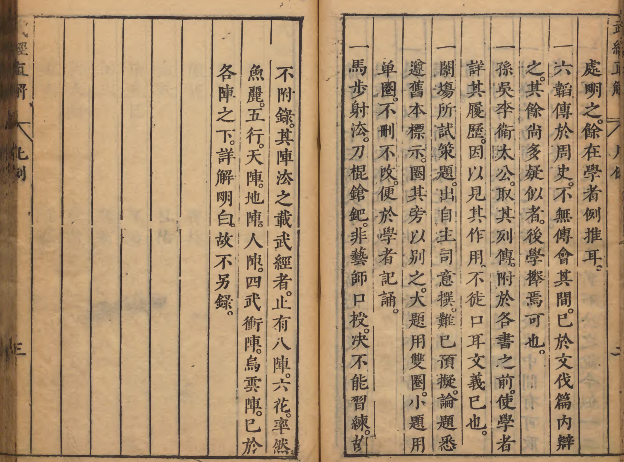 處明之。餘在學者例推耳。
一六韜傳於周史。不無傳會其間。已於文伐篇內辯
之。其餘尚多疑似者。後學擇焉可也。
一孫吳李衛太公。取其列傳。附於各書之前。使學者
詳其履歷。因以見其作用不徒口耳文義已也。
一闈塲所試策題。出自主司意撰。難已預擬。論題悉
遵舊本標示。圈其旁以別之。大題用雙圈。小題用
单圈。不刪不改。便於學者記誦。
一馬步射法。刀棍鎗鈀。非藝師口授。决不能習練。故
武經直解
凡例
三
不附錄。其陣法之載武經者。止有八陣。六花。率然
魚麗。五行。天陣。地陣。人陣。四武衝陣。烏雲陣。已於
各陣之下。詳解明白。故不另錄。